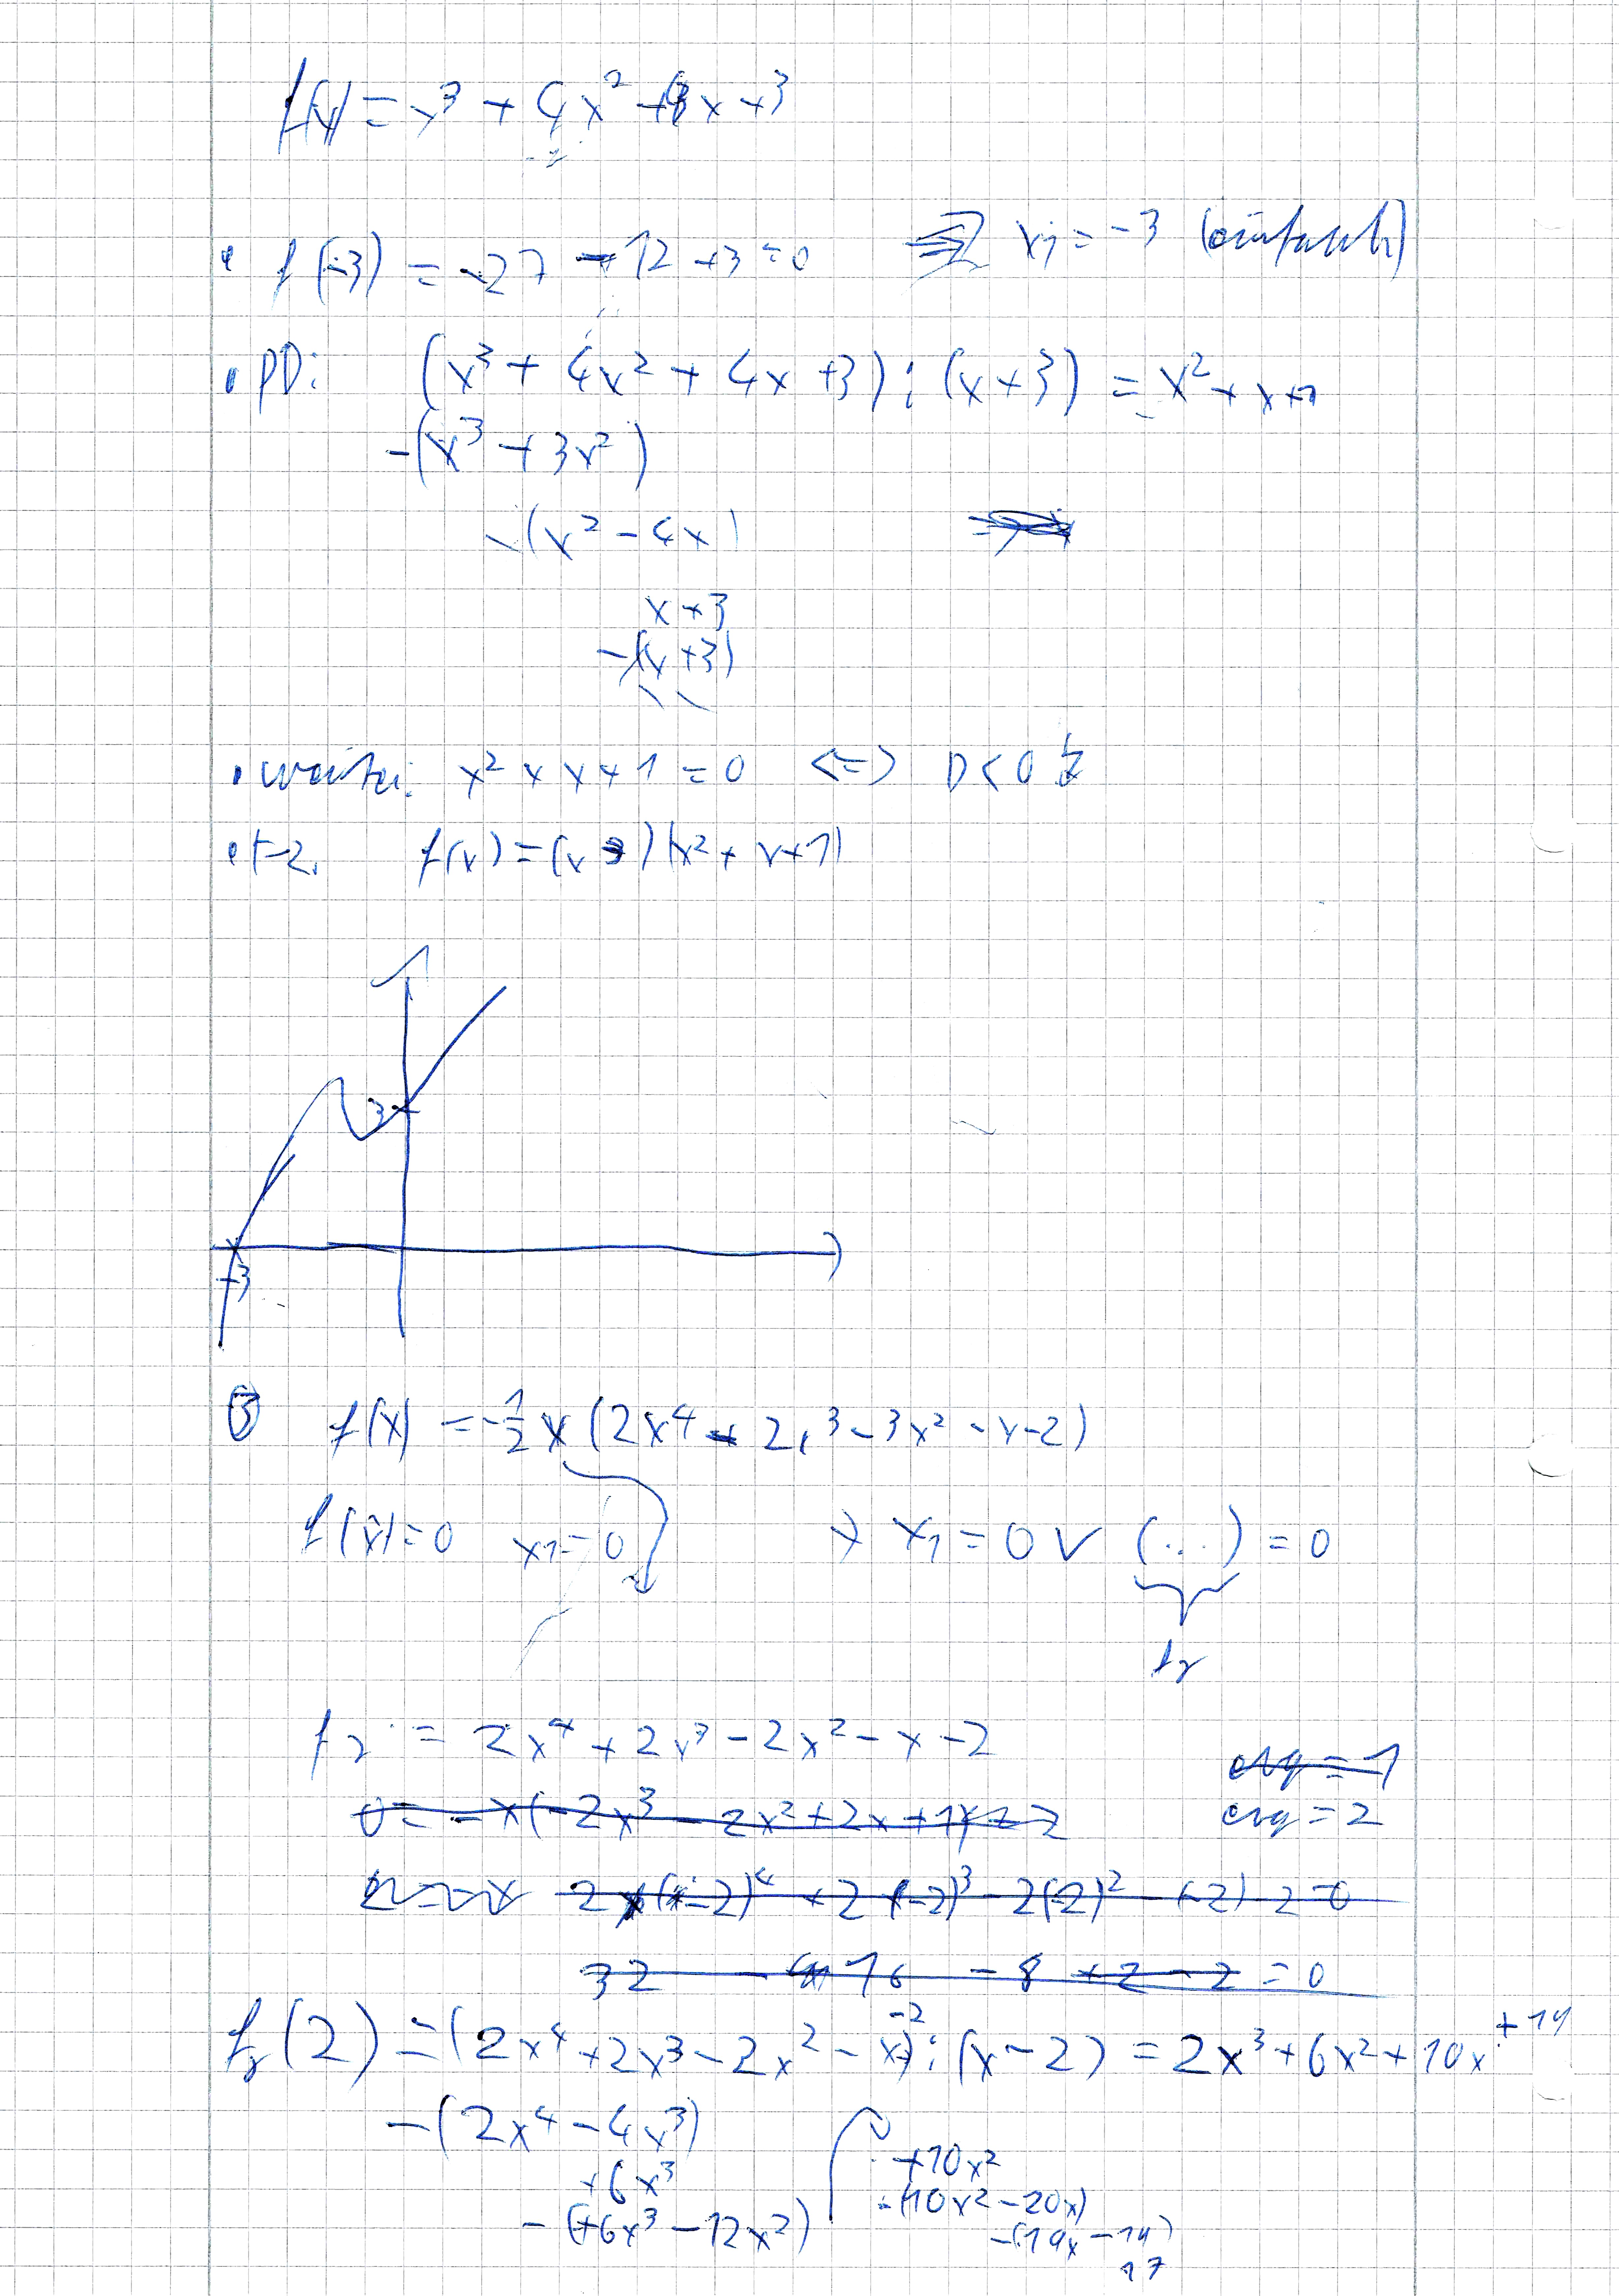 f(x) = x³ + 4x² + 4x + 3
• f(-3) = -27 - 12 + 3 = 0 ⇒ x₁ = -3 (einfach)
• PD: (x³ + 4x² + 4x + 3) : (x + 3) = x² + x + 1
-(x³ + 3x²)
-(x² - 4x)
x + 3
-(x + 3)
• weiter: x² + x + 1 = 0 <=> D < 0 ↯
f(x) = (x 3) (x² + x + 1)
3
-3
③ f(x) = -1/2 x (2x⁴ + 2x³ - 3x² - x - 2)
f(x) = 0 x₁ = 0 → x₁ = 0 ∨ (...) = 0
f₂
f₂ = 2x⁴ + 2x³ - 2x² - x - 2
erg = 1
0 = -x(-2x³ - 2x² + 2x + 1) - 2 erg = 2
2 (-2)⁴ + 2 (-2)³ - 2(-2)² - (-2) - 2 = 0
32 - 16 - 8 + 2 - 2 = 0
f₂(2) = (2x⁴ + 2x³ - 2x² - x - 2) : (x - 2) = 2x³ + 6x² + 10x + 19
-(2x⁴ - 4x³)
+6x³
-(+6x³ - 12x²)
+10x²
-(10x² - 20x)
-(19x - 19)
17